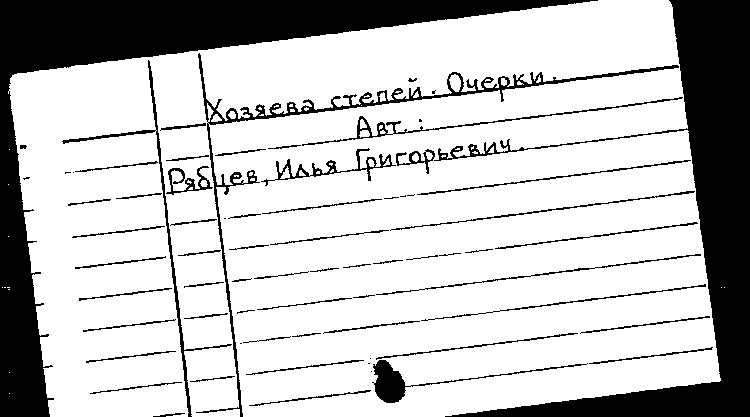 Хозяева степей. Очерки.
Авт.:
Рябцев, Илья Григорьевич.